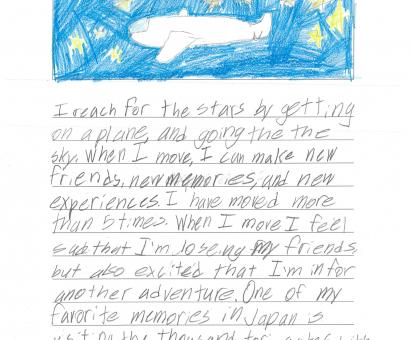 I reach for the stars by getting
on a plane, and going the the
sky. When I move, I can make new
friends, new memories, and new
experiences. I have moved more
than 5 times. When I move I feel
sad that I'm loseing my friends,
but also excited that I'm in for
another adventure. One of my
favorite memories in Japan is
visiting the thousand tori gates with